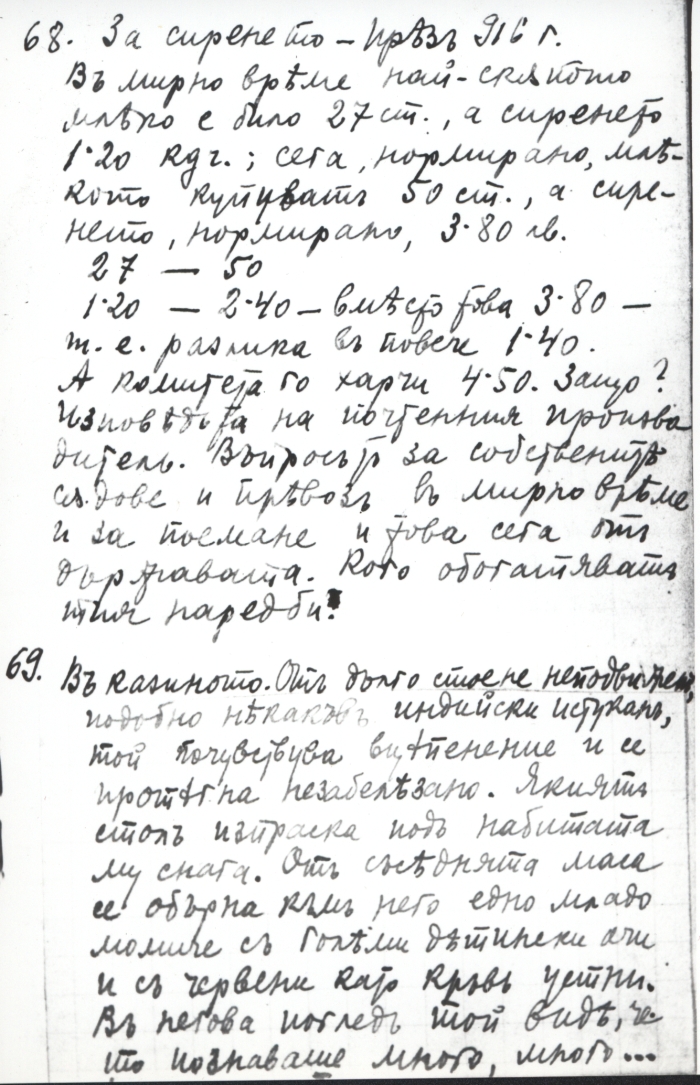 68. За сиренето – Прѣзъ 916 г.
Въ мирно врѣме най-скѫпото
млѣко е било 27 ст., а сиренето
1·20 кдг.; сега, нормирано, млѣ-
кото купуватъ 50 ст., а сире-
нето, нормирано, 3·80 лв.
27 — 50
1·20 — 2·40 – вмѣсто това 3·80 —
т. е. разлика въ повече 1·40.
А комитета го харчи 4·50. Защо?
Изповѣдьта на почтенния произво
дитель. Въпросът за собственитѣ
сѫдове и прѣвозъ въ мирно врѣме
и за поемане и това сега отъ
държавата. Кого обогатяватъ
тия наредби!
69. Въ казиното. Отъ дълго стоене неподвиженъ,
подобно нѣкакъвъ индийски истуканъ,
той почувствува вцѣпенение и се
протѣгна незабелѣзано. Якиятъ
столъ изтраска подъ набитата
му снага. Отъ съсѣдната маса
се обърна къмъ него едно младо
момиче съ голѣми дѣтински очи
и съ червени като кръвь устни.
Въ негова погледъ той видѣ, че
то познаваше много, много...